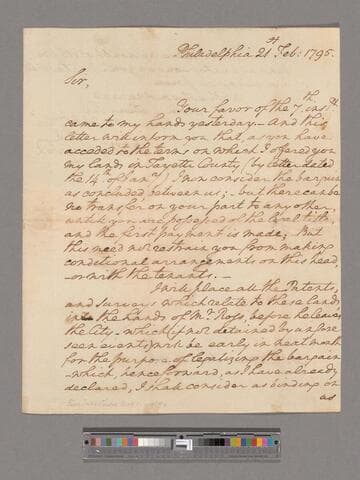 Philadelphia 21st Feb: 1795.
Sir,
Your favor of the 7th inst
came to my hands yesterday – And this
letter will inform you that, as you have
acceded to the terms on which I offered you
my lands in Fayette County (by letter dated
the 14th of Jany) I now consider the bargain
as concluded between us; – but there can be
no transfer on your part to any other,
until you are possessed of the legal title,
and the first payment is made; But
this need not restrain you from making
conditional arrangements on this head,
– or with the tenants. –
I will place all the Patents,
and surveys which relate to these lands
in the hands of Mr. Ross, before he leaves
the City – which (if not detained by unfore
seen events) will be early in next month
for the purpose of legalizing the bargain
– which, henceforward, as I have already
declared, I shall consider as binding on
as